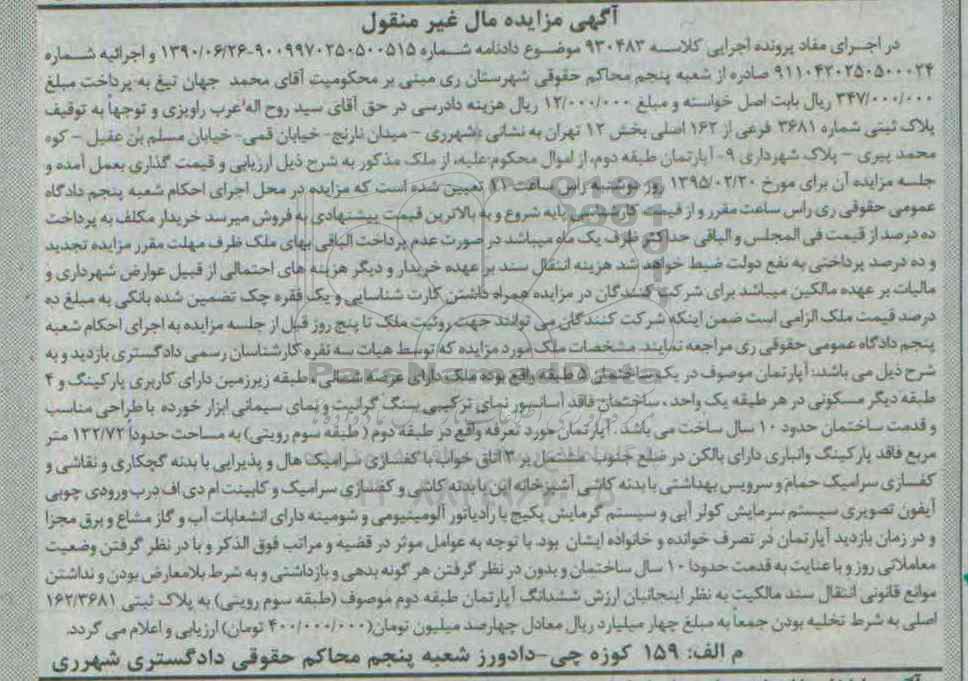 آگهی مزایده مال غیر منقول
در اجرای مفاد پرونده اجرایی کلاسه ۹۳۰۴۸۳ موضوع دادنامه شماره ۹۰۰۹۹۷۰۲۵۰۵۰۰۵۱۵-۱۳۹۰/۰۶/۲۶ و اجرائیه شماره
۹۱۱۰۴۲۰۲۵۰۵۰۰۰۲۴ صادره از شعبه پنجم محاکم حقوقی شهرستان ری مبنی بر محکومیت آقای محمد جهان تیغ به پرداخت مبلغ
۳۴۷/۰۰۰/۰۰۰ ریال بابت اصل خواسته و مبلغ ۱۲/۰۰۰/۰۰۰ ریال هزینه دادرسی در حق آقای سید روح اله عرب راویزی و توجهاً به توقیف
پلاک ثبتی شماره ۳۶۸۱ فرعی از ۱۶۲ اصلی بخش ۱۲ تهران به نشانی :شهرری - میدان نارنج- خیابان قمی- خیابان مسلم بن عقیل - کوه
محمد پیری - پلاک شهرداری ۹- آپارتمان طبقه دوم، از اموال محکوم علیه، از ملک مذکور به شرح ذیل ارزیابی و قیمت گذاری بعمل آمده و
جلسه مزایده آن برای مورخ ۱۳۹۵/۰۲/۲۰ روز دوشنبه راس ساعت ۱۱ تعیین شده است که مزایده در محل اجرای احکام شعبه پنجم دادگاه
عمومی حقوقی ری راس ساعت مقرر و از قیمت کارشناسی پایه شروع و به بالاترین قیمت پیشنهادی به فروش میرسد خریدار مکلف به پرداخت
ده درصد از قیمت فی المجلس و الباقی حداکثر ظرف یک ماه میباشد در صورت عدم پرداخت الباقی بهای ملک ظرف مهلت مقرر مزایده تجدید
و ده درصد پرداختی به نفع دولت ضبط خواهد شد هزینه انتقال سند بر عهده خریدار و دیگر هزینه های احتمالی از قبیل عوارض شهرداری و
مالیات بر عهده مالکین میباشد برای شرکت کنندگان در مزایده همراه داشتن کارت شناسایی و یک فقره چک تضمین شده بانکی به مبلغ ده
درصد قیمت ملک الزامی است ضمن اینکه شرکت کنندگان می توانند جهت روئیت ملک تا پنج روز قبل از جلسه مزایده به اجرای احکام شعبه
پنجم دادگاه عمومی حقوقی ری مراجعه نمایند. مشخصات ملک مورد مزایده که توسط هیات سه نفره کارشناسان رسمی دادگستری بازدید و به
شرح ذیل می باشد: آپارتمان موصوف در یک ساختمان ۵ طبقه واقع بوده ملک دارای عرصه شمالی ، طبقه زیرزمین دارای کاربری پارکینگ و ۴
طبقه دیگر مسکونی در هر طبقه یک واحد ، ساختمان فاقد آسانسور نمای ترکیبی سنگ گرانیت و نمای سیمانی ابزار خورده با طراحی مناسب
و قدمت ساختمان حدود ۱۰ سال ساخت می باشد . آپارتمان مورد تعرفه واقع در طبقه دوم ( طبقه سوم رویتی) به مساحت حدوداً ۱۳۲/۷۲ متر
مربع فاقد پارکینگ وانباری دارای بالکن در ضلع جنوب مشتمل بر ۳ اتاق خواب با کفسازی سرامیک هال و پذیرایی با بدنه گچکاری و نقاشی و
کفسازی سرامیک حمام و سرویس بهداشتی با بدنه کاشی آشپزخانه اپن با بدنه کاشی و کفسازی سرامیک و کابینت ام دی اف درب ورودی چوبی
آیفون تصویری سیستم سرمایش کولر آبی و سیستم گرمایش پکیج با رادیاتور آلومینیومی و شومینه دارای انشعابات آب و گاز مشاع و برق مجزا
و در زمان بازدید آپارتمان در تصرف خوانده و خانواده ایشان بود. با توجه به عوامل موثر در قضیه و مراتب فوق الذکر و با در نظر گرفتن وضعیت
معاملاتی روز و با عنایت به قدمت حدودا ۱۰ سال ساختمان و بدون در نظر گرفتن هر گونه بدهی و بازداشتی و به شرط بلامعارض بودن و نداشتن
موانع قانونی انتقال سند مالکیت به نظر اینجانبان ارزش ششدانگ آپارتمان طبقه دوم موصوف (طبقه سوم رویتی) به پلاک ثبتی ۱۶۲/۳۶۸۱
اصلی به شرط تخلیه بودن جمعاً به مبلغ چهار میلیارد ریال معادل چهارصد میلیون تومان(۴۰۰/۰۰۰/۰۰۰ تومان) ارزیابی و اعلام می گردد.
م الف: ۱۵۹ کوزه چی-دادورز شعبه پنجم محاکم حقوقی دادگستری شهرری